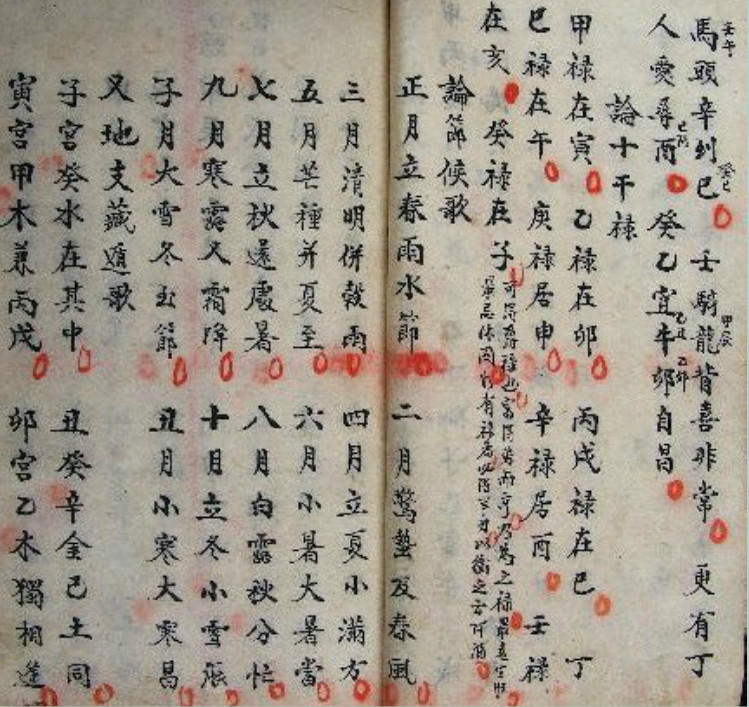 馬頭辛到巳 壬騎龍背喜非常 更有丁
壬午 癸巳 甲辰
人愛尋酉 癸乙宜牛卯自昌
己酉 乙丑 乙卯
論十干禄
甲禄在寅 乙禄在卯 丙戊禄在巳 丁
巳禄在午 庚禄居申 辛禄居酉 壬禄
在亥 癸禄在子
論節候歌
正月立春雨水節 二月驚蟄及春風
三月清明併穀雨 四月立夏小滿方
五月芒種并夏至 六月小暑大暑當
七月立秋還處暑 八月白露秋分忙
九月寒露又霜降 十月立冬小雪張
子月大雪冬至節 丑月小寒大寒昌
又地支藏遁歌
子宮癸水在其中 丑癸辛金己土同
寅宮甲木兼丙戊 卯宮乙木獨相逢